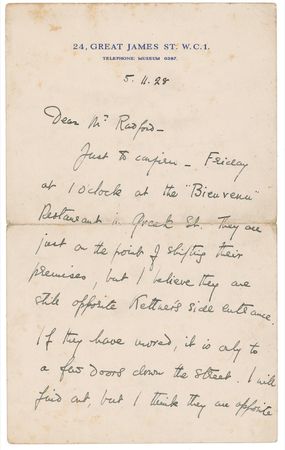 24, GREAT JAMES ST. W.C.1.
TELEPHONE: MUSEUM 0397.
5. 11. 28
Dear Mr Radford –
Just to confirm – Friday
at 1 o'clock at the "Bienvenu"
Restaurant in Greek St. They are
just on the point of shifting their
premises, but I believe they are
still opposite Kettner's side entrance.
If they have moved, it is only to
a few doors down the street. I will
find out, but I think they are opposite